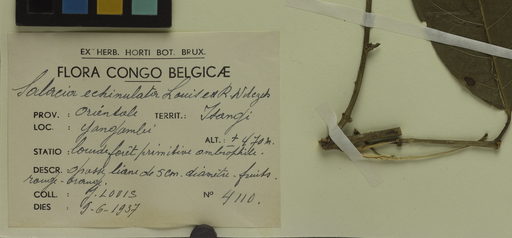 EX HERB. HORTI BOT. BRUX.
FLORA CONGO BELGICÆ
Salacia echinulata Louis ex R. Wilczek
PROV. : Orientale TERRIT. : Isangi
LOC. : Yangambi
ALT. : ± 470 m.
STATIO : forêt primitive ombrophile.
DESCR. : liane de 5 cm. diamètre - fruits
rouge-orangé.
COLL. : J. LOUIS Nº 4110.
DIES : 9-6-1937